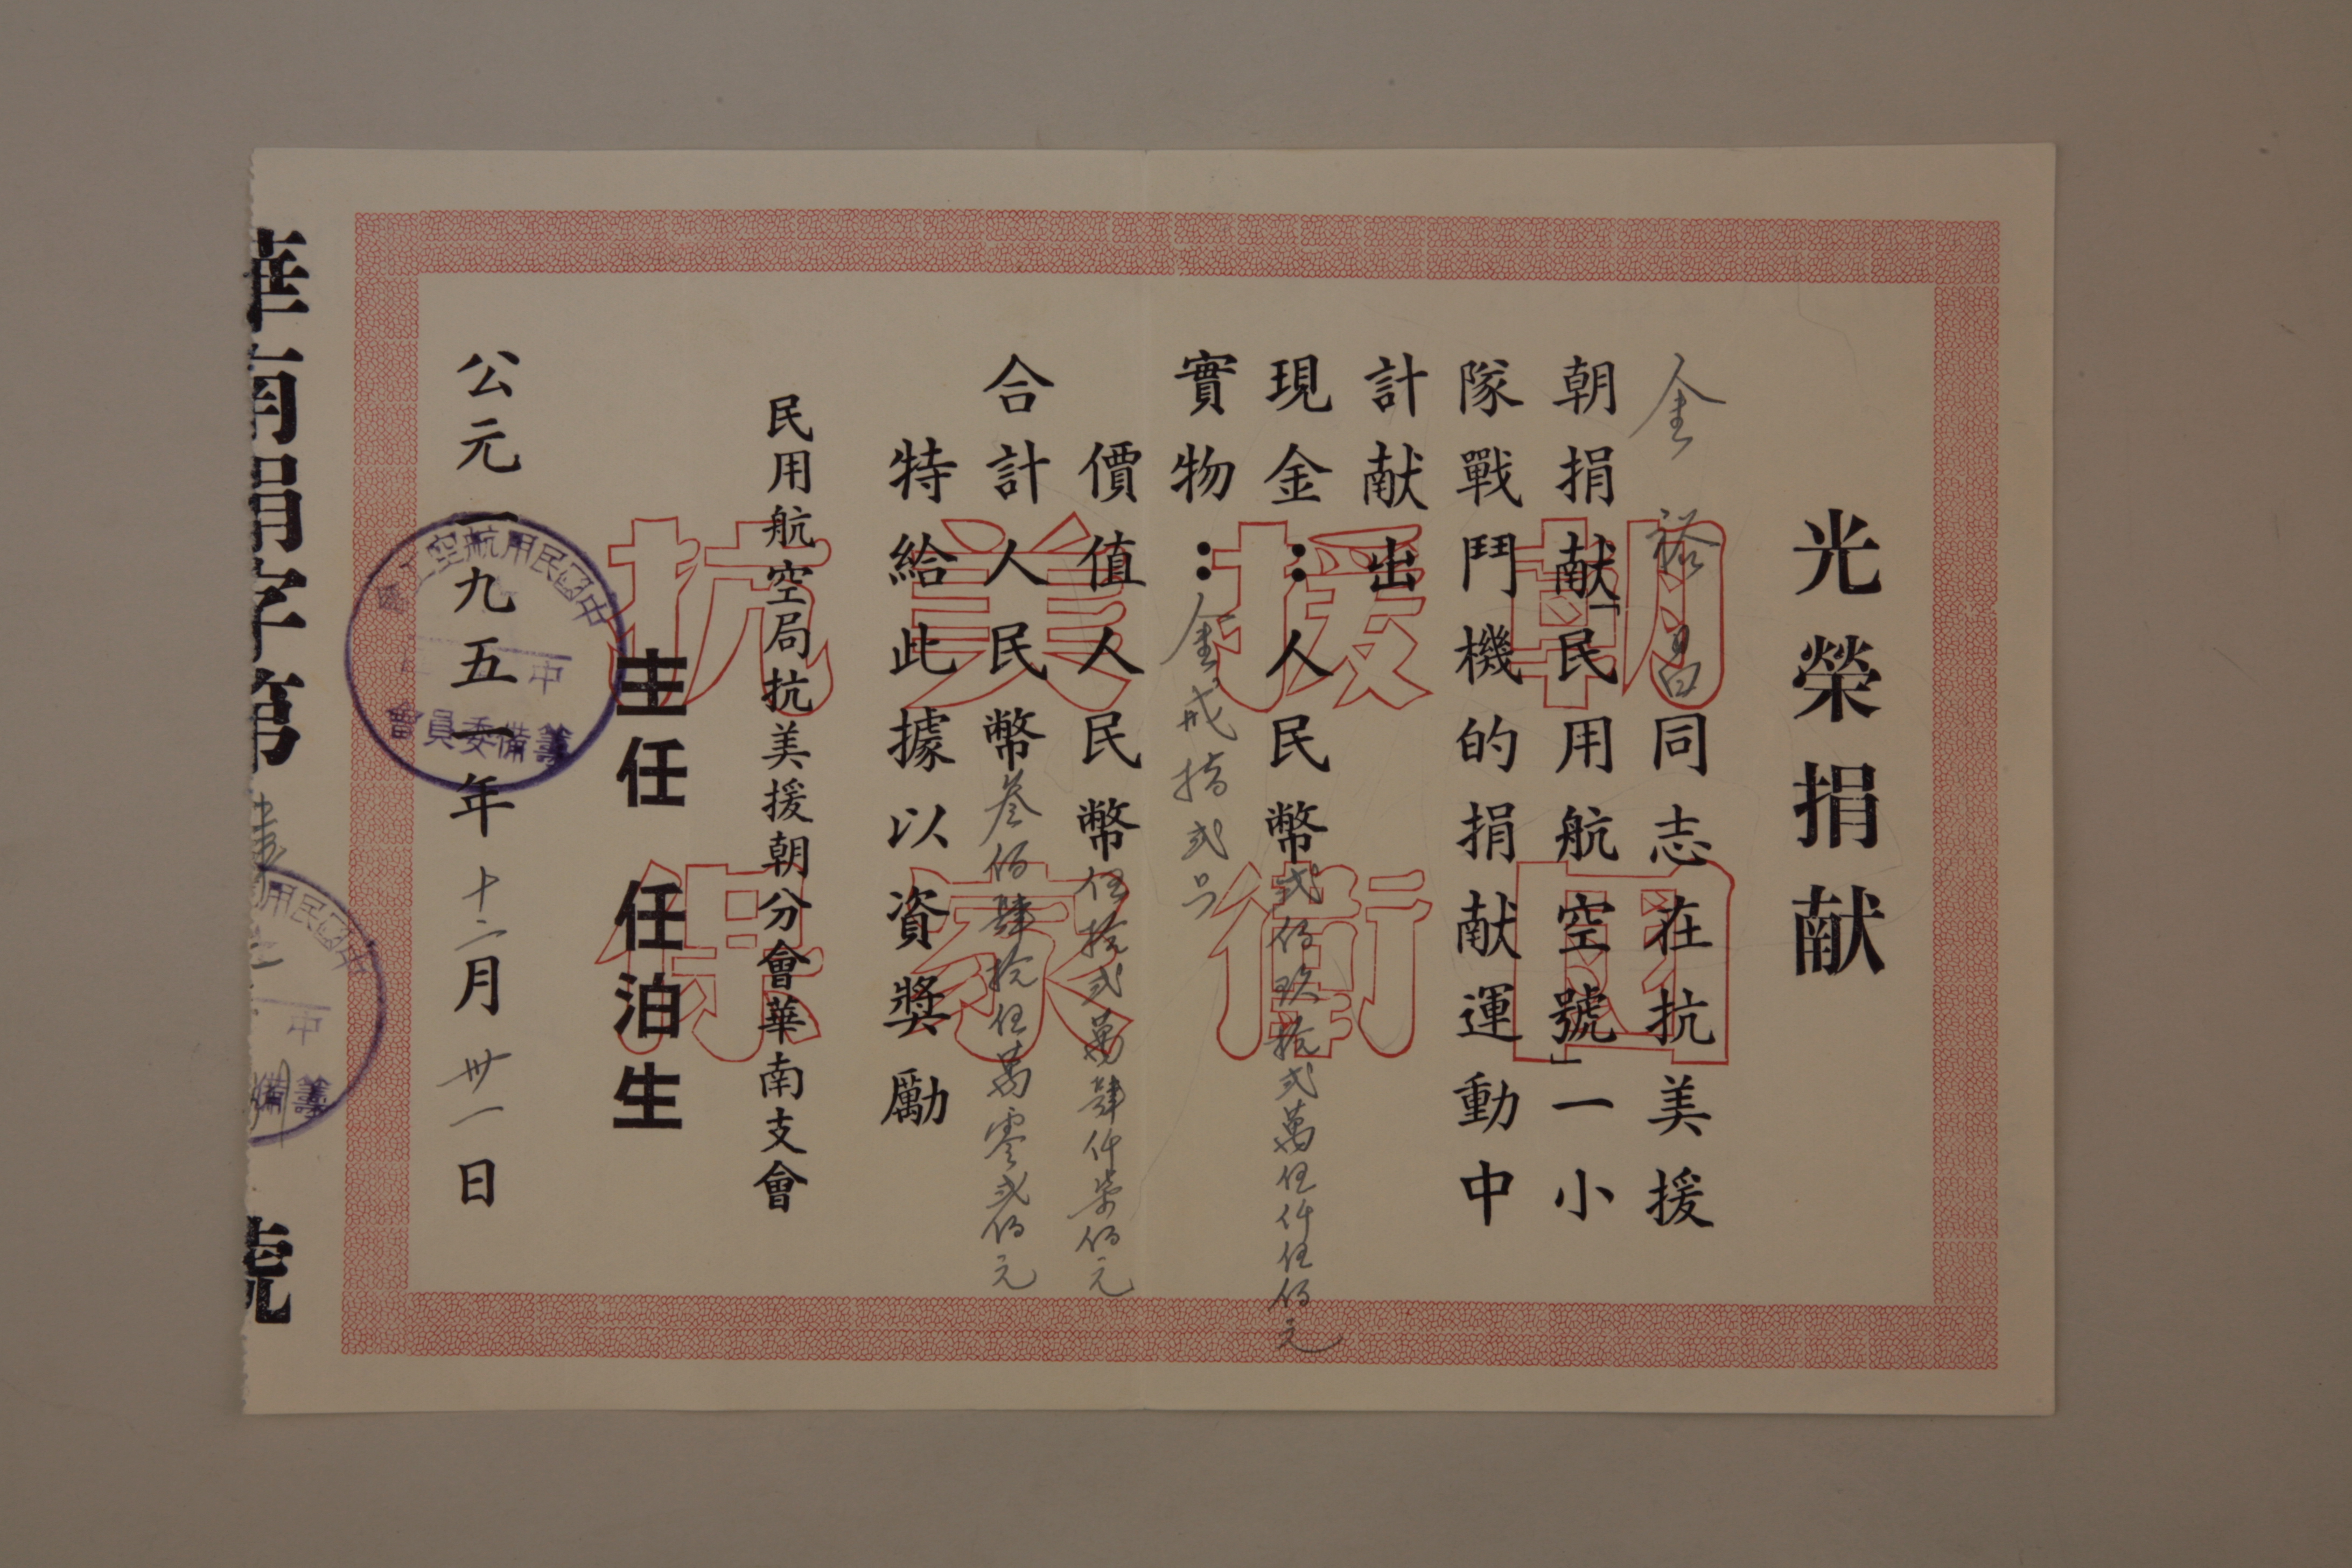 光榮捐献
金裕昌同志在抗美援
朝捐献「民用航空號」一小
隊戰鬥機的捐献運動中
計献出
現金：人民幣弍佰玖拾弍萬伍仟伍佰元
實物：金戒指弍只
價值人民幣伍拾弍萬肆仟柒佰元
合計人民幣叁佰肆拾伍萬零弍佰元
特給此據以資獎勵
民用航空局抗美援朝分會華南支會
主任 任泊生
公元一九五一年十二月卅一日
華南捐字第 號
抗美援朝
保家衛國
中國民用航空
籌備委員會